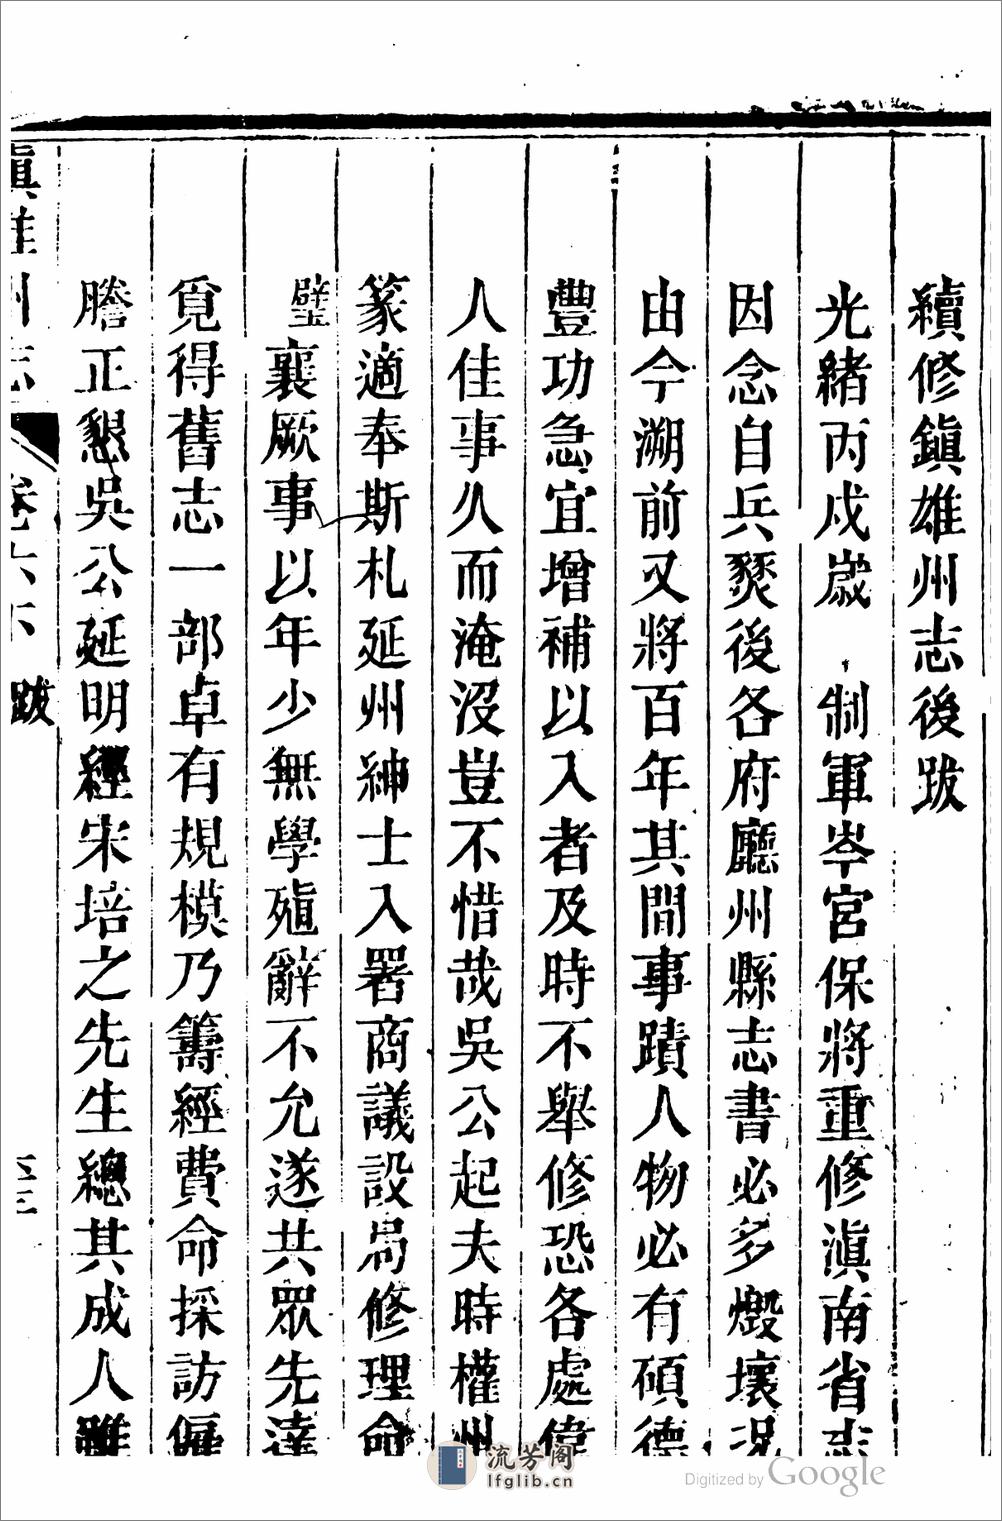 續修鎭雄州志後跋
光緒丙戍歲 制軍岑宮保將重修滇南省志
因念自兵燹後各府廳州縣志書必多燬壞況
由今溯前又將百年其間事蹟人物必有碩德
豐功急宜增補以入者及時不舉修恐各處偉
人佳事久而淹沒豈不惜哉吳公起夫時權州
篆適奉斯札延州紳士入署商議設局修理命
璧襄厥事以年少無學殖辭不允遂共眾先達
覓得舊志一部卓有規模乃籌經費命採訪僱
謄正懇吳公延明經宋培之先生總其成人雖
鎭雄州志 卷六下 跋
流芳阁
lfglib.cn
Digitized by Google